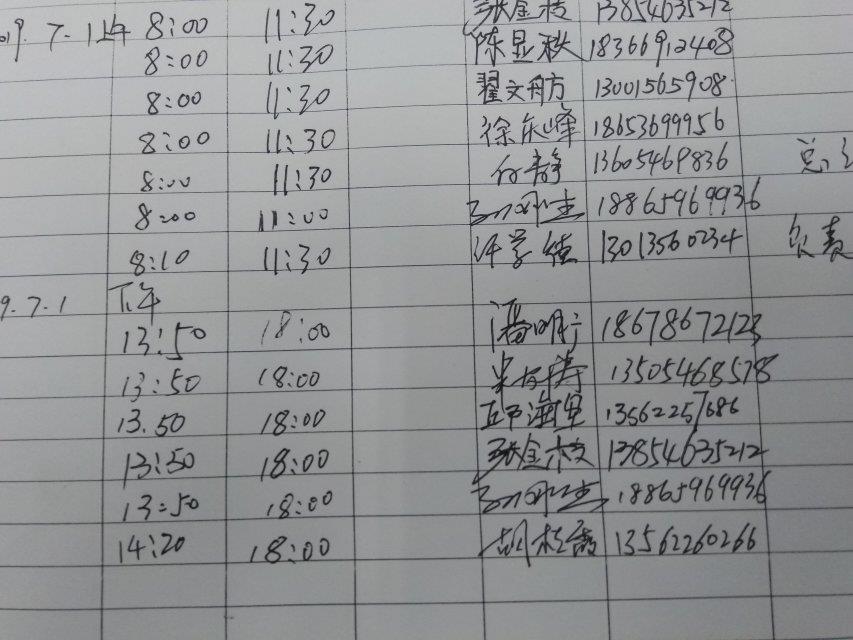 19. 7. 1上午 8:00 11:30 张金枝 13854635212
8:00 11:30 陈显秋 18366912408
8:00 11:30 翟文舫 13001565908
8:00 11:30 徐东峰 18653699956
8:00 11:30 付静 13605469836 总
8:00 11:00 18865969936
8:10 11:30 许学德 13013560234 负责
9. 7. 1 下午
13:50 18:00 潘明 18678672123
13:50 18:00 13505468578
13.50 18:00 海 13562257686
13:50 18:00 张金枝 13854635212
13:50 18:00 18865969936
14:20 18:00 胡 13562260266